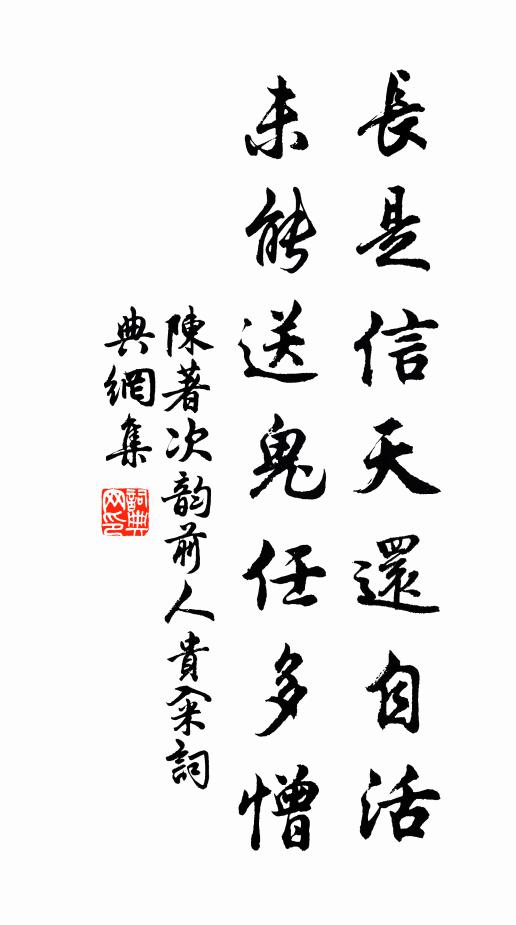 長是信天還自活
未能送鬼任多憎
陳著次韵前人貴籴詞
典網集
詞典网印